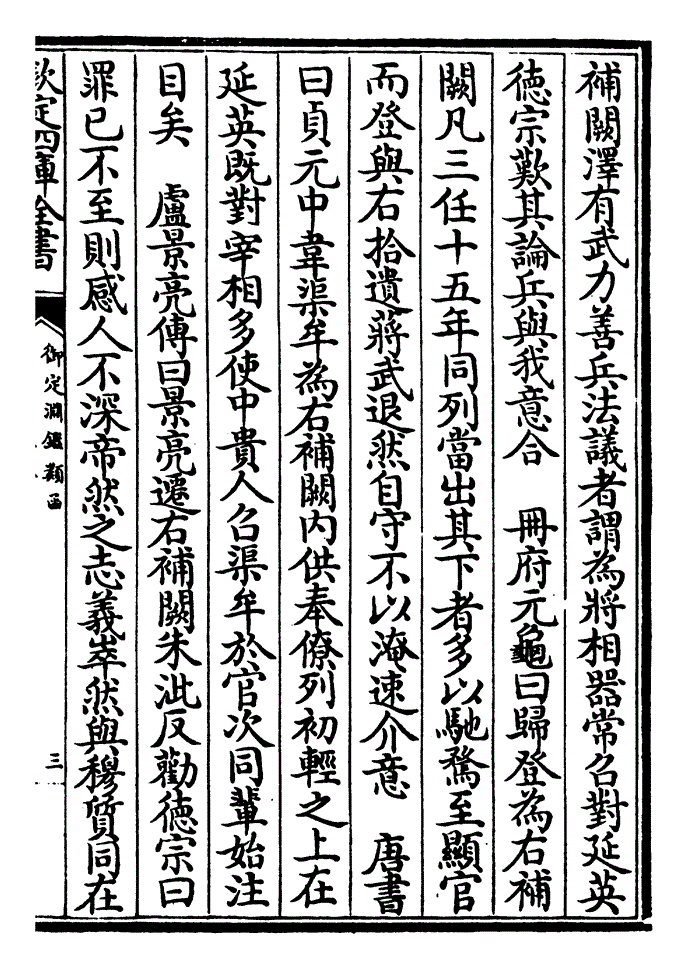 補闕澤有武力善兵法議者謂為將相器常召對延英
徳宗歎其論兵與我意合　冊府元龜曰歸登為右補
闕凡三任十五年同列當出其下者多以馳騖至顯官
而登與右拾遺蔣武退然自守不以淹速介意　唐書
曰貞元中韋渠牟為右補闕内供奉僚列初輕之上在
延英既對宰相多使中貴人召渠牟於官次同輩始注
目矣　盧景亮傳曰景亮遷右補闕朱泚反勸徳宗曰
罪已不至則感人不深帝然之志義崒然與穆質同在
欽定四庫全書
御定淵鑑類函
三